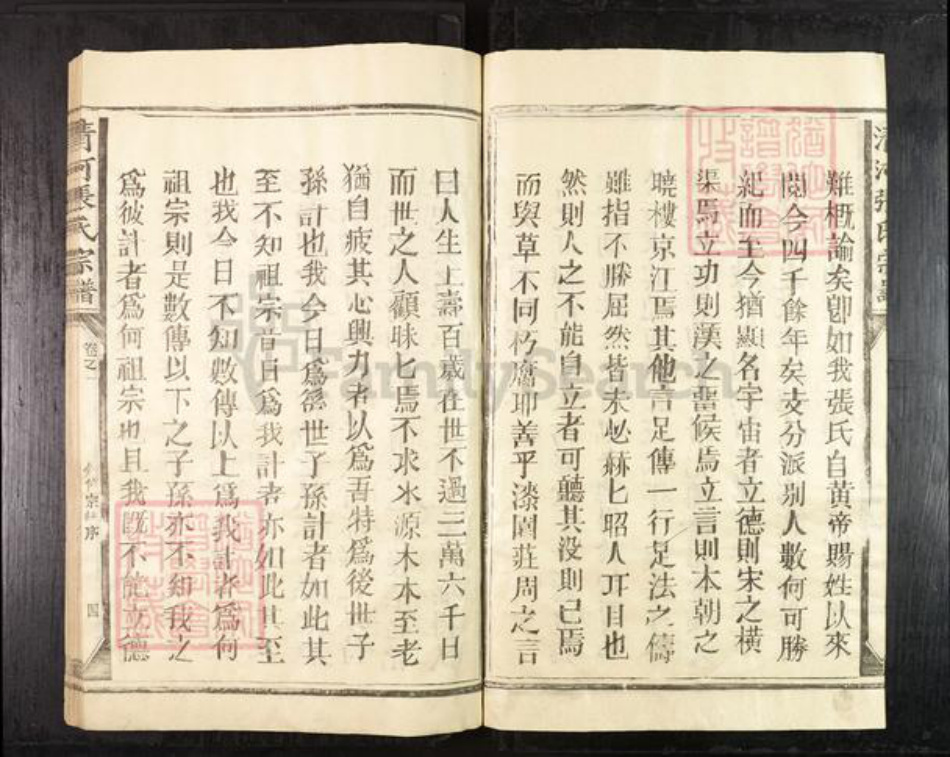 難概諭矣卽如我張氏自黃帝賜姓以來
閱今四千餘年矣支分派别人數何可勝
紀而至今猶顯名宇宙者立德則宋之橫
渠焉立功則漢之畱候焉立言則本朝之
曉樓京江焉其他言足傳一行足法之儔
雖指不勝屈然皆未必赫匕昭人耳目也
然則人之不能自立者可聽其没則已焉
而與草不同朽腐耶善乎漆園莊周之言
曰人生上壽百歲在世不過三萬六千日
而世之人顧昧匕焉不求水源木本至老
猶自疲其心興力者以爲吾特爲後世子
孫計也我今日爲後世子孫計者如此其
至不知祖宗昔日爲我計者亦如此其至
也我今日不知數傳以上爲我計者爲何
祖宗則是數傳以下之子孫亦不知我之
爲彼計者爲何祖宗也且我旣不能立德
清河張氏宗譜
卷之一
宗 序
四
清河張氏宗譜
FamilySearch